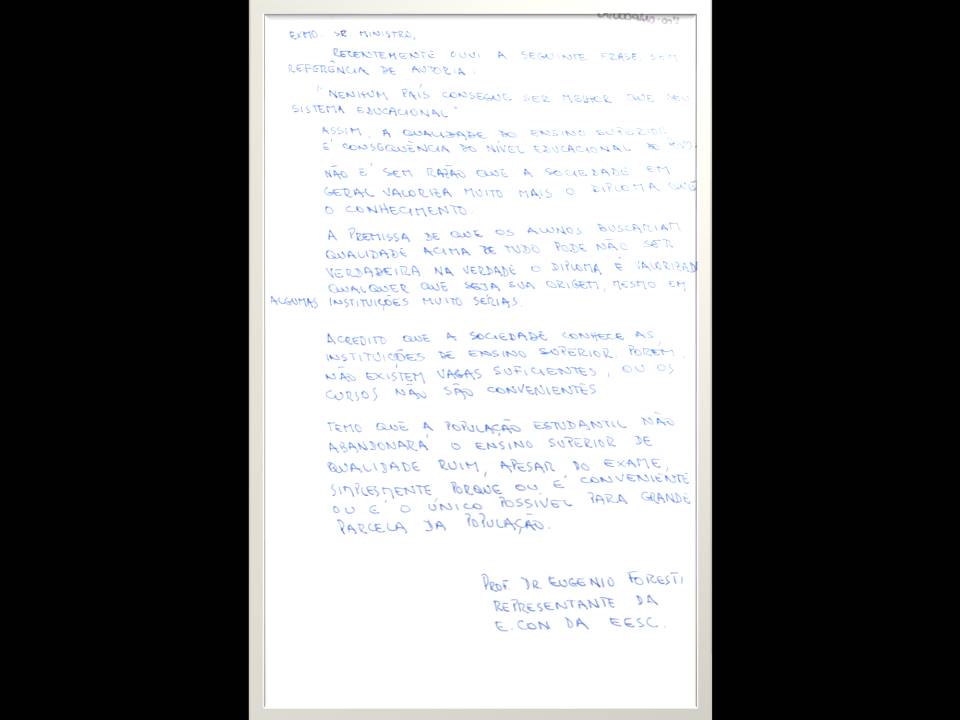 EXMO. SR. MINISTRO,
RECENTEMENTE OUVI A SEGUINTE FRASE SEM
REFERÊNCIA DE AUTORIA.
"NENHUM PAÍS CONSEGUE SER MELHOR QUE SEU
SISTEMA EDUCACIONAL"
ASSIM, A QUALIDADE DO ENSINO SUPERIOR
É CONSEQUÊNCIA DO NÍVEL EDUCACIONAL DO POVO.
NÃO É SEM RAZÃO QUE A SOCIEDADE EM
GERAL VALORIZA MUITO MAIS O DIPLOMA QUE
O CONHECIMENTO.
A PREMISSA DE QUE OS ALUNOS BUSCARIAM
QUALIDADE ACIMA DE TUDO PODE NÃO SER
VERDADEIRA NA VERDADE O DIPLOMA É VALORIZAD
QUALQUER QUE SEJA SUA ORIGEM, MESMO EM
ALGUMAS INSTITUIÇÕES MUITO SÉRIAS.
ACREDITO QUE A SOCIEDADE CONHECE AS
INSTITUIÇÕES DE ENSINO SUPERIOR. PORÉM,
NÃO EXISTEM VAGAS SUFICIENTES, OU OS
CURSOS NÃO SÃO CONVENIENTES
TEMO QUE A POPULAÇÃO ESTUDANTIL NÃO
ABANDONARÁ O ENSINO SUPERIOR DE
QUALIDADE RUIM, APESAR DO EXAME,
SIMPLESMENTE PORQUE OU É CONVENIENTE
OU É O ÚNICO POSSÍVEL PARA GRANDE
PARCELA DA POPULAÇÃO.
PROF. DR EUGENIO FORESTI
REPRESENTANTE DA
E.CON DA EESC.